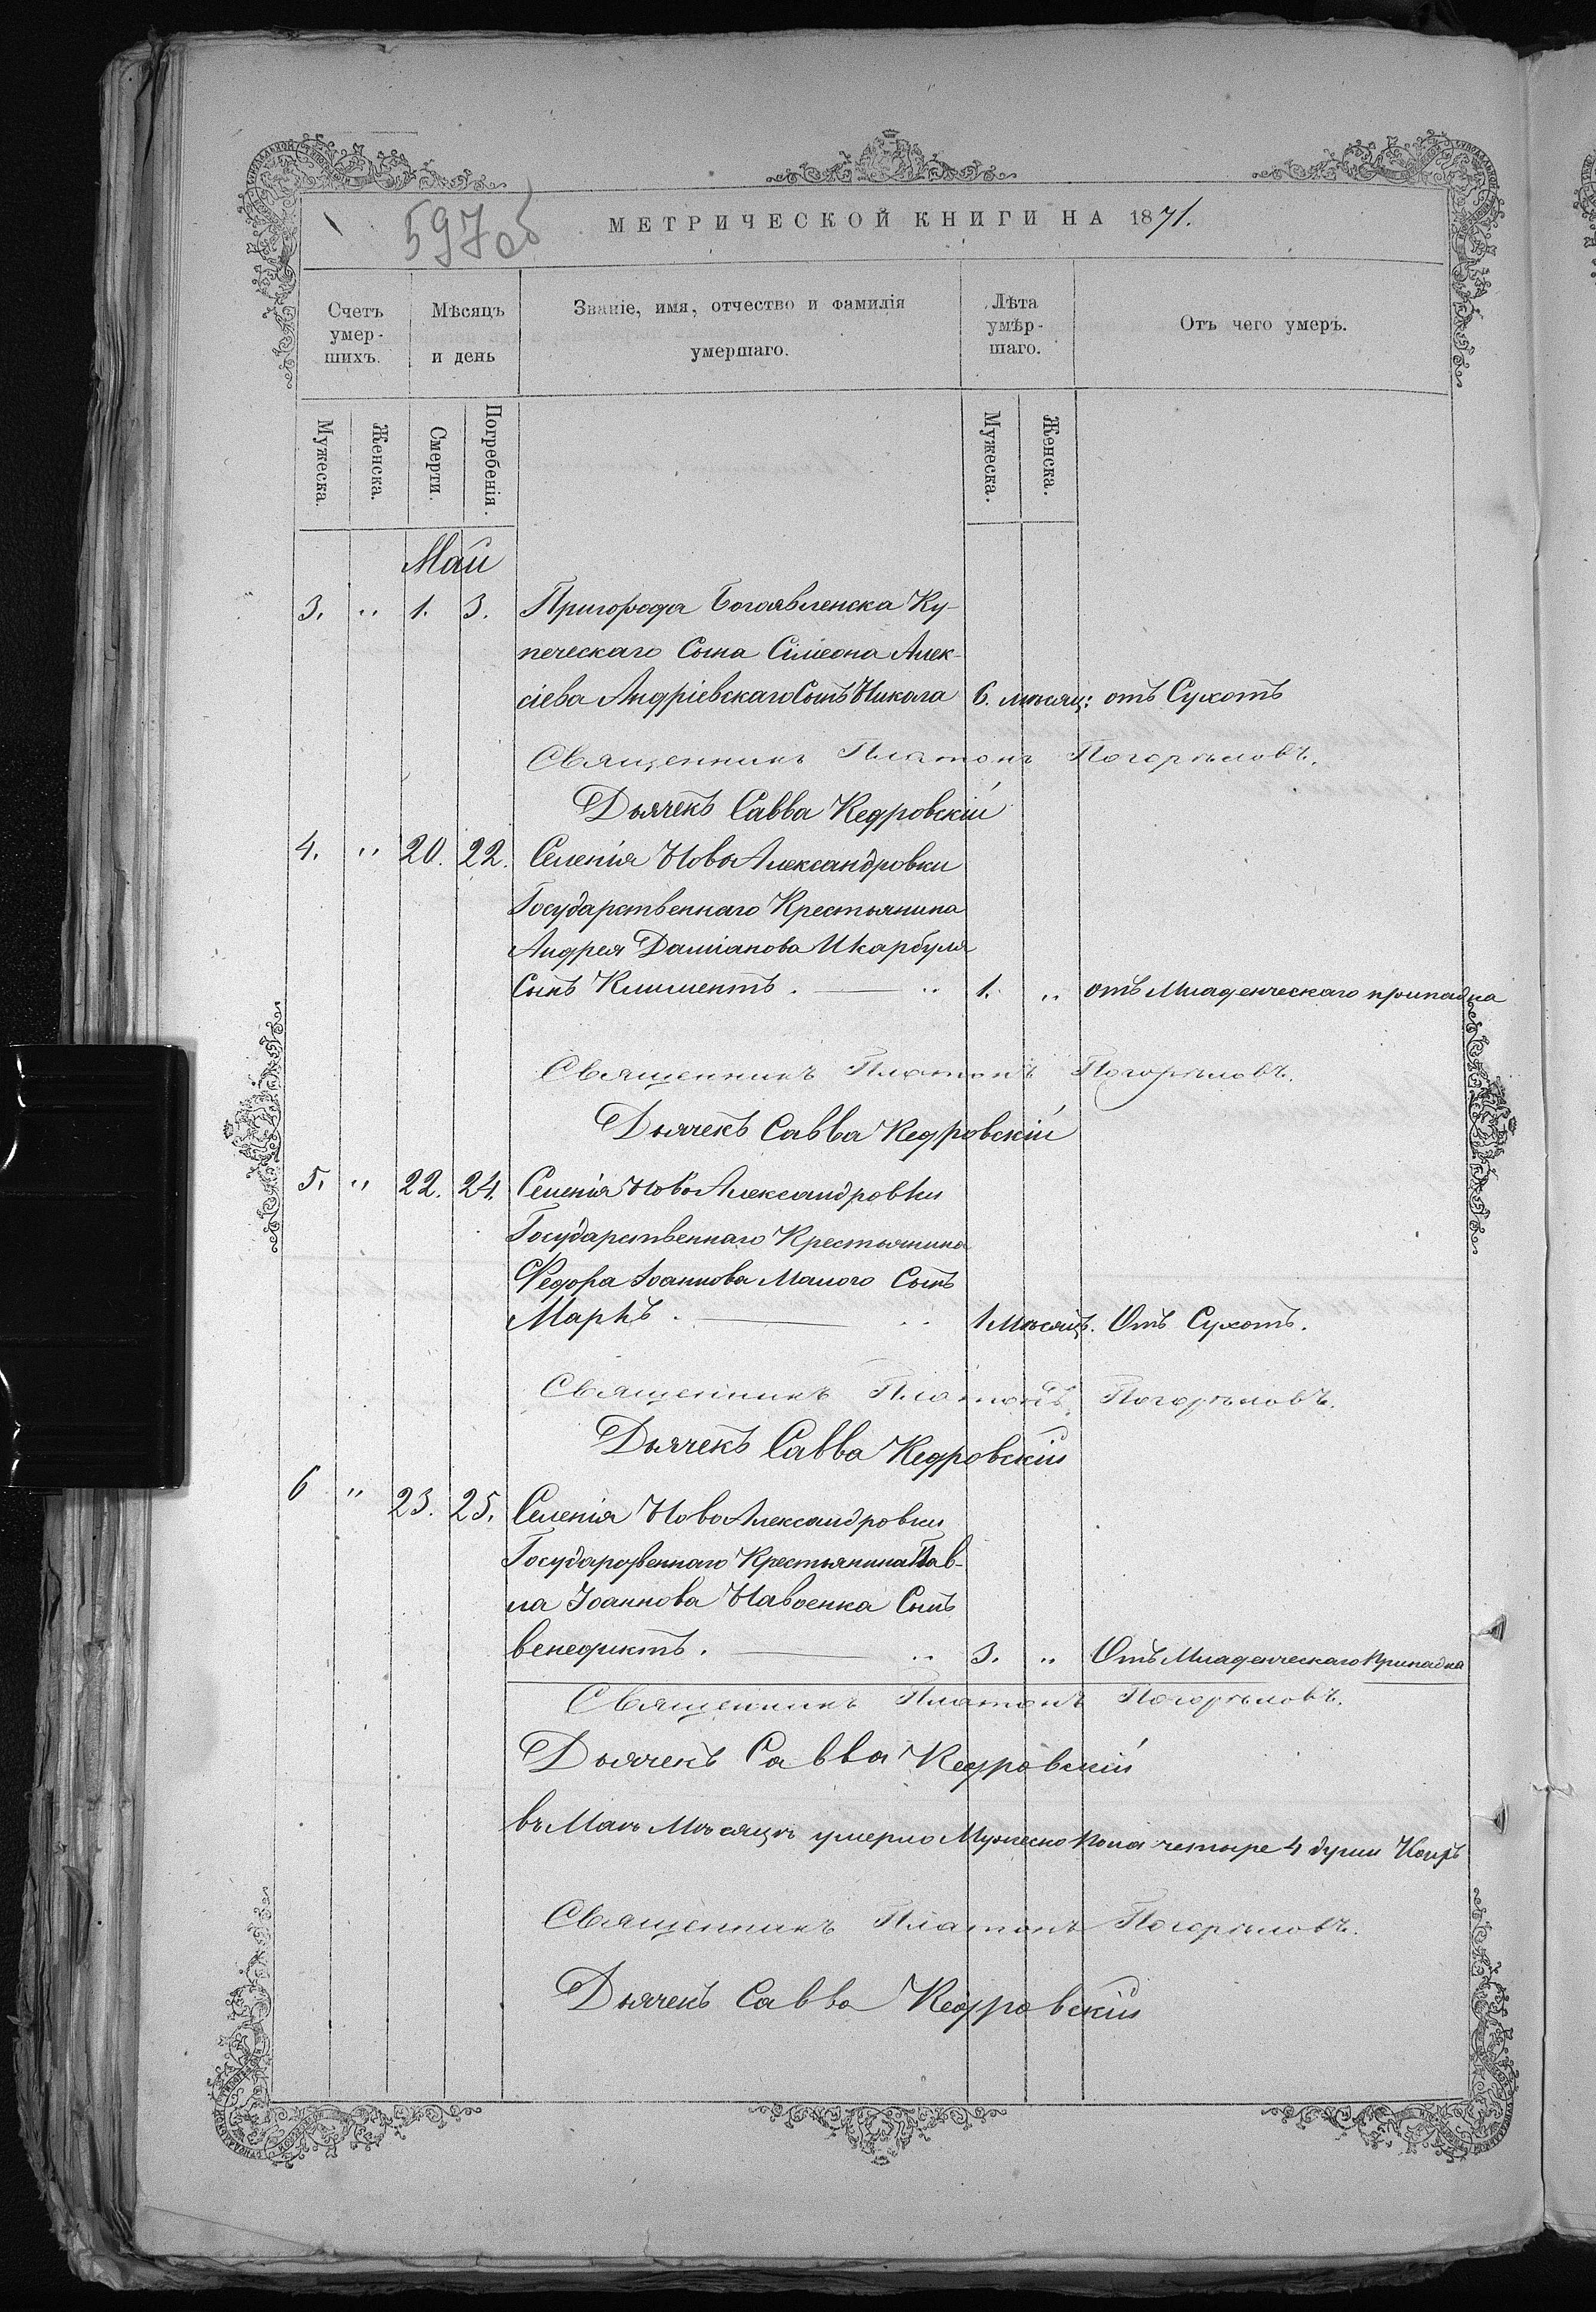 597 об
МЕТРИЧЕСКОЙ КНИГИ НА 1871.
Счетъ умер-шихъ.
Мѣсяцъ и день
Званіе, имя, отчество и фамилія умершаго.
Лѣта умѣр-шаго.
Отъ чего умеръ.
Мужеска.
Женска.
Смерти.
Погребенія.
Мужеска.
Женска.
Май
3. " 1. 3. Пригорода Богоявленска Ку-
печескаго Сына Сімеона Алек-
сіева Андріевскаго Сынъ Никола 6. мѣсяц: отъ Сухотъ
Священникъ Платонъ Погорѣловъ.
Дьячекъ Савва Кедровскій
4. " 20. 22. Селенія НовоАлександровки
Государственнаго Крестьянина
Андрея Даміанова Шкарбуля
Сынъ Климентъ. — " 1. " отъ Младенческаго припадка
Священникъ Платонъ Погорѣловъ.
Дьячекъ Савва Кедровскій
5. " 22. 24. Селенія НовоАлександровки
Государственнаго Крестьянина
Федора Іоаннова Малого Сынъ
Маркъ. — " 1 Мѣсяцъ. Отъ Сухотъ.
Священникъ Платонъ Погорѣловъ.
Дьячекъ Савва Кедровскій
6 " 23. 25. Селенія НовоАлександровки
Государственнаго Крестьянина Пав-
ла Іоаннова Навоенка Сынъ
Венедиктъ. — " 3. " Отъ Младенческаго Припадка
Священникъ Платонъ Погорѣловъ.
Дьячекъ Савва Кедровскій
въ Маѣ Мѣсяцѣ умерло Мужеско пола четыре 4 души
Священникъ Платонъ Погорѣловъ.
Дьячекъ Савва Кедровскій